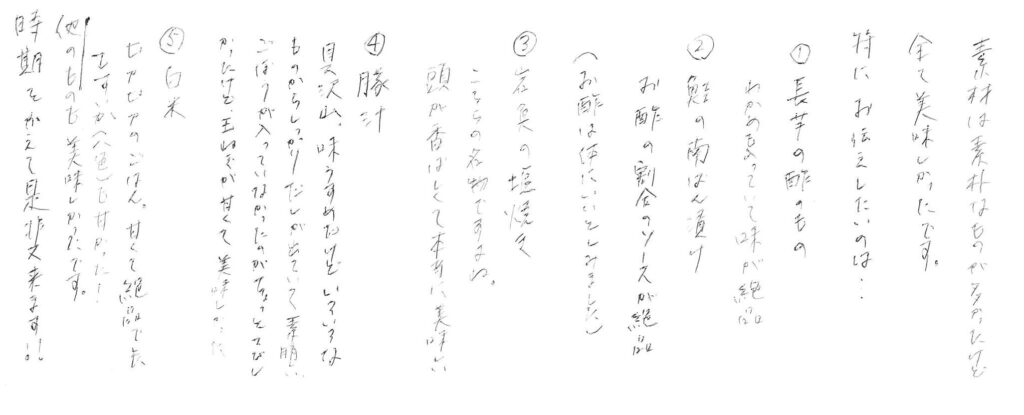 素材は素朴なものが多かったけど
全て美味しかったです。
特にお伝えしたいのは・・
① 長芋の酢のもの
わかめもあっていて味が絶品
② 鮭の南ばん漬け
お酢の割合のソースが絶品
(お酢は体にいいとしみました)
③ 岩魚の塩焼き
こちらの名物ですよね。
頭が香ばしくて本当に美味しい
④ 豚汁
具沢山。味うすめだけど いろいろな
ものからしっかりだしが出ていて素晴い
ごぼうが入っていなかったのがちょっとさびし
かったけど玉ねぎが甘くて美味しかった
⑤ 白米
ピカピカのごはん。甘くて絶品でした
ですいか(色)も甘かった!
他のものも美味しかったです。
時期をかえて是非又来ます!!